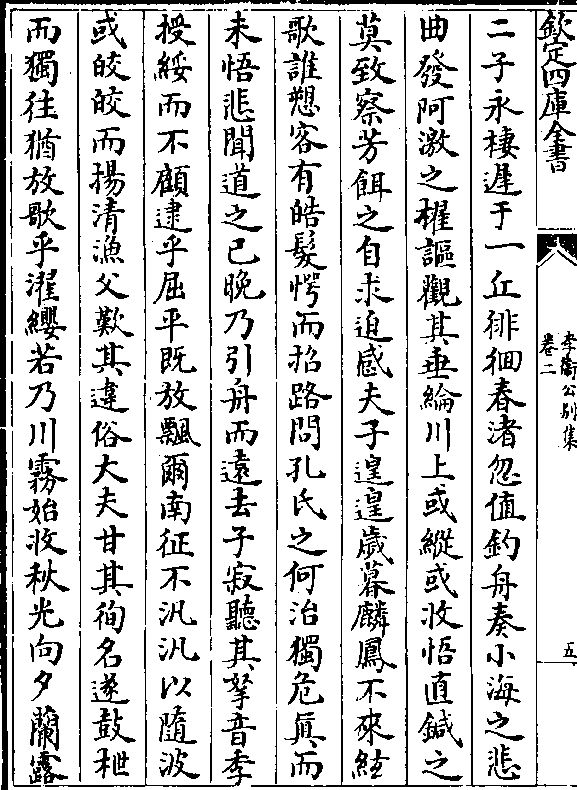 欽定四庫全書
李衛公别集
卷二
五
二子永棲遲于一丘徘徊春渚忽值釣舟奏小海之悲
曲發阿激之櫂謳觀其垂綸川上或縱或收悟直鍼之
莫致察芳餌之自求迫感夫子遑遑歲暮麟鳳不來絃
歌誰愬客有皓髮愕而招路問孔氏之何治獨危真而
未悟悲聞道之已晚乃引舟而遠去子寂聽其拏音季
授綏而不顧逮乎屈平既放飄爾南征不汎汎以隨波
或皎皎而揚清漁父歎其違俗大夫甘其徇名遂鼓枻
而獨往猶放歌乎濯纓若乃川霧始收秋光向夕蘭露